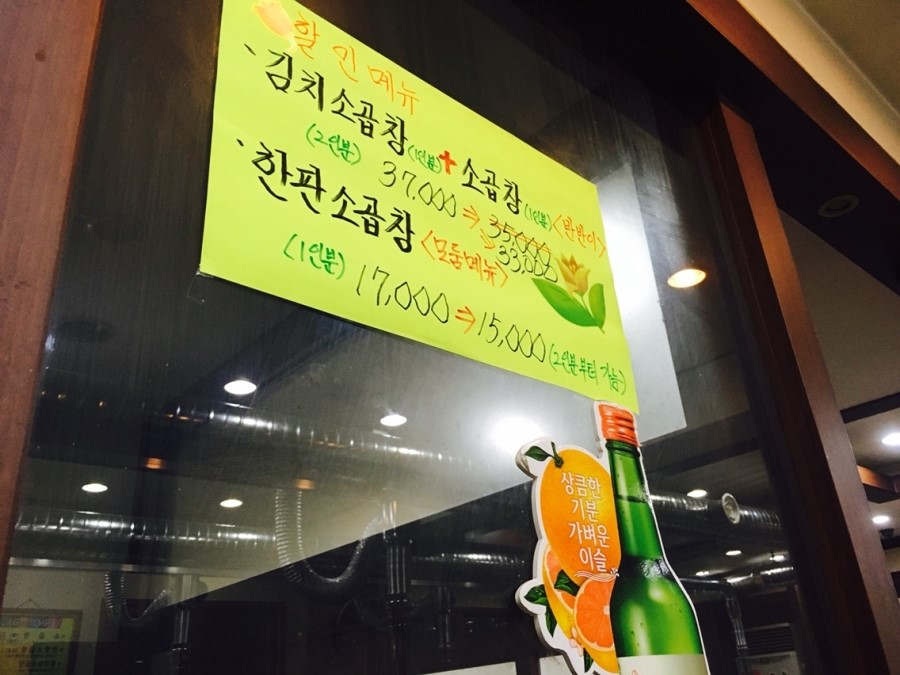 할인메뉴
김치소곱창(1인분)+소곱창(1인분)<반반이>
(2인분) 37,000⇒35,000
33,000
한판소곱창<모둠메뉴>
(1인분) 17,000⇒15,000(2인분부터 가능)
상큼한
기분
가벼운
이슬